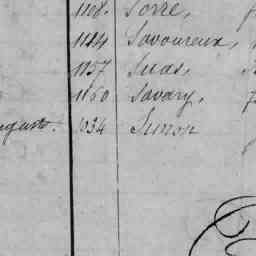 1108. Sorre,
1184 Savoureux,
1157 Suas,
1160 Savary,
1034 Simon